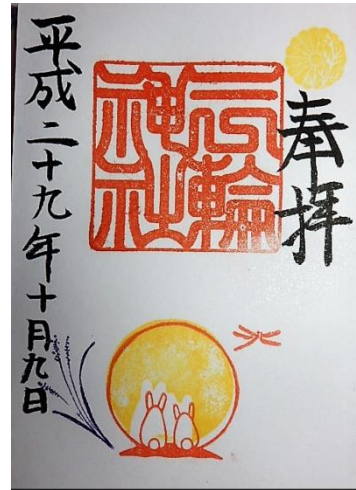 奉拝
三輪
神社
平成二十九年十月九日